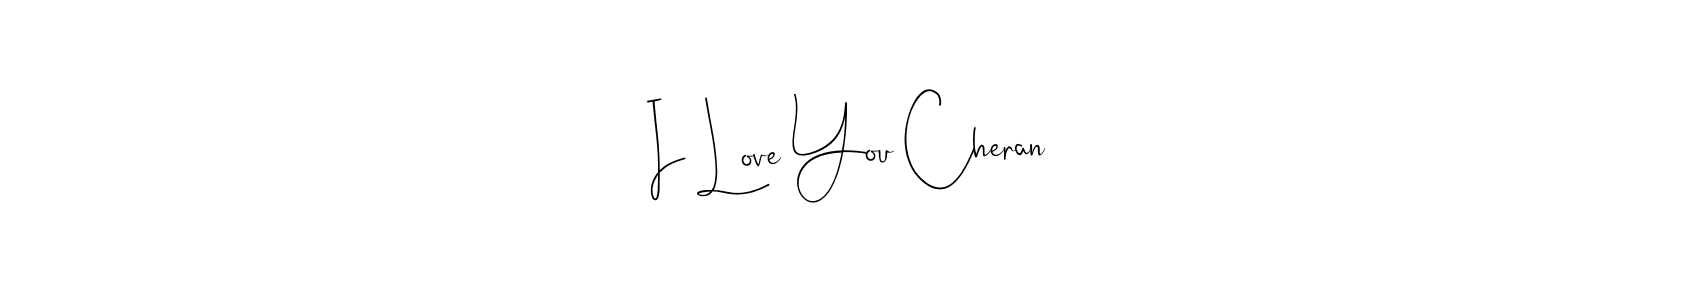 I Love You Cheran